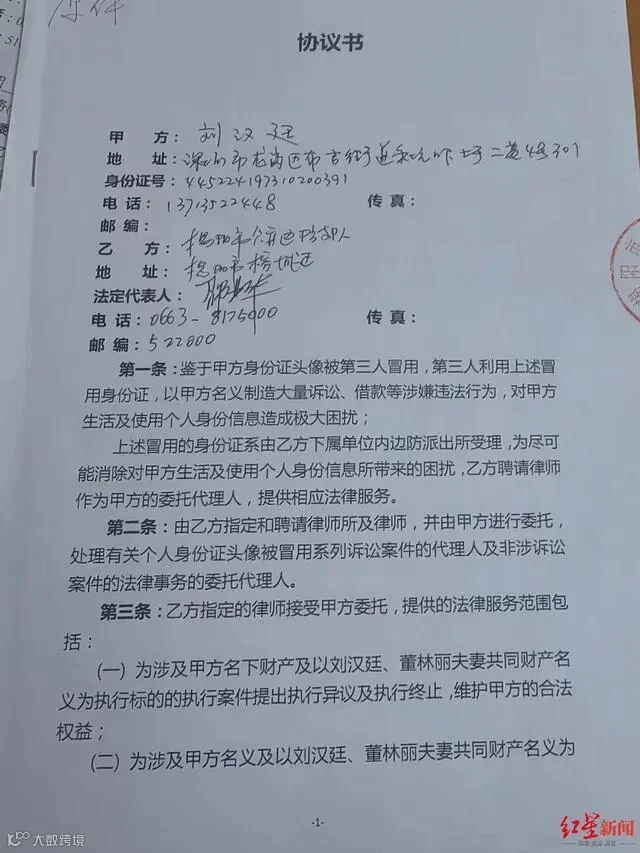 原件
协议书
甲 方：刘汉廷
地 址：深圳市龙岗区布吉街道二巷4号301
身份证号：445224197310200391
电 话：13713522448 传 真：
邮 编：
乙 方：揭阳市
地 址：揭阳市榕城区
法定代表人：
电 话：0663-8175000 传 真：
邮 编：522000
第一条：鉴于甲方身份证头像被第三人冒用，第三人利用上述冒
用身份证，以甲方名义制造大量诉讼、借款等涉嫌违法行为，对甲方
生活及使用个人身份信息造成极大困扰；
上述冒用的身份证系由乙方下属单位内边防派出所受理，为尽可
能消除对甲方生活及使用个人身份信息所带来的困扰，乙方聘请律师
作为甲方的委托代理人，提供相应法律服务。
第二条：由乙方指定和聘请律师所及律师，并由甲方进行委托，
处理有关个人身份证头像被冒用系列诉讼案件的代理人及非涉诉讼
案件的法律事务的委托代理人。
第三条：乙方指定的律师接受甲方委托，提供的法律服务范围包
括：
(一) 为涉及甲方名下财产及以刘汉廷、董林丽夫妻共同财产名
义为执行标的的执行案件提出执行异议及执行终止，维护甲方的合法
权益；
(二) 为涉及甲方名义及以刘汉廷、董林丽夫妻共同财产名义为
-1-
红星新闻
大数跨境